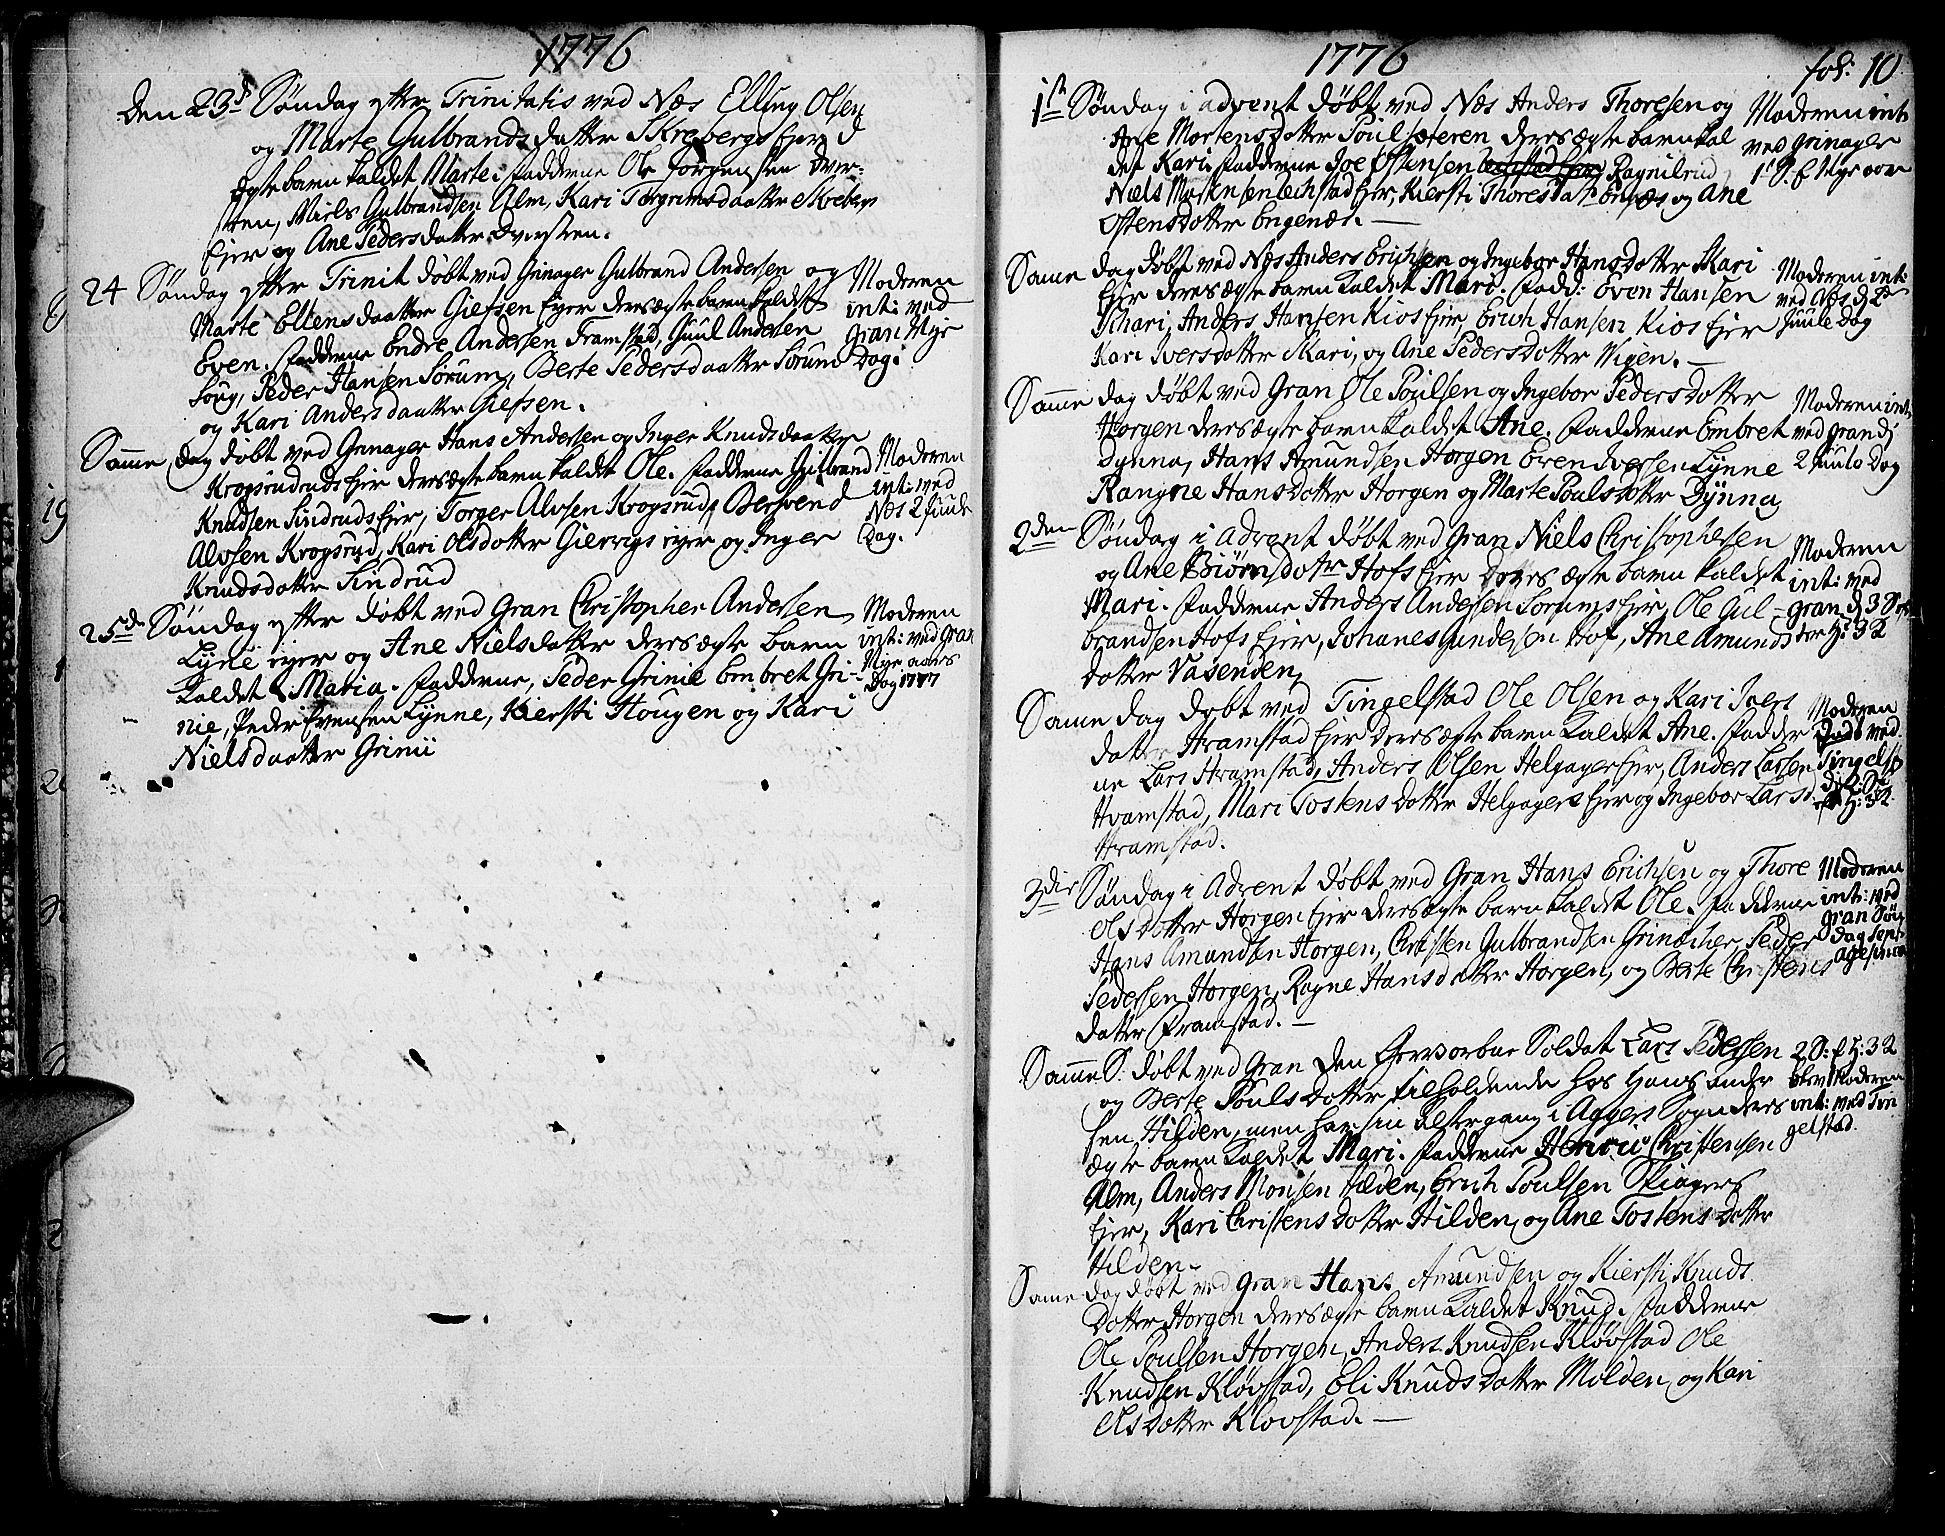 1776
Den 23d Søndag efter Trinitatis ved Næs Elling Olsen
og Marte Gulbrands datter Skrebergs Ejer d
Egte barn kaldet Marte. Fadderne Ole Jorgensen Dver-
sten, Niels Gulbrandsen Alm, Kari Torgrimsdaatter Skrebergs
Ejer og Ane Peders datter Dversten.
24 Søndag efter Trinit døbt ved Grinager Gulbrand Andersen og
Marte Ellens daatter Giefsen Ejer deres ægte barn kaldet
Even. Fadderne Endre Andersen Framstad, Guul Andersen
Houg, Peder Hansen Sørum, Berte Peders daatter Sørum
og Kari Anders daatter Giefsen.
Moderen
int: ved
Gran Nye
Dag.
Samme dag døbt ved Grinager Hans Andersen og Inger Knudsdaatter
Krogsruds Ejer deres ægte barn kaldet Ole. Fadderne Gulbrand
Knudsen Sindruds Ejer, Torger Alvsen Krogsrud, Berwend
Alvsen Krogsrud, Kari Olsdotter Gierrigs ejer og Inger
Knudsdotter Sindrud
Moderen
int: ved
Næs 2 Juule
Dag.
25de Søndag efter døbt ved Gran Christopher Andersen
Lyne ejer og Ane Niels datter deres ægte barn
kaldet Maria. Fadderne, Peder Grinie Embret Gri-
nie, Peder Evensen Lynne, Kiersti Hougen og Kari
Niels daatter Grinii
Moderen
int: ved Gran
Nye aars
Dag 1777
1776
fol: 10
1st Søndag i advent døbt ved Næs Anders Thoresen og
Ane Mortensdotter Poulsæteren deres ægte barn kal
det Kari. Fadderne Joe Ostensen Ragnilrud,
Niels Mortensen Echstad Ejer, Kiersti Thoresdatr Engnæs og Ane
Ostensdotter Engenæs.
Moderen int
ved Grinager
1 S. f Nye aar
Same dag døbt ved Næs Anders Erichsen og Ingebor Hansdotter Skari
Ejer deres ægte barn kaldet Mari. Fadd: Even Hansen
Schari, Anders Hansen Kios Ejer Erich Hansen Kios Ejer
Kari Iversdotter Skari, og Ane Peders dotter Wigen.
Moderen int:
ved Næs d 2den
Juule Dag
Samme dag døbt ved Gran Ole Poulsen og Ingebor Peders dotter
Horgen deres ægte barn kaldet Ane. Fadderne Embret
Dynna, Hans Amundsen Horgen Even Iversen Lynne
Rangne Hansdotter Horgen og Marte Pouls dotter Dynna
Moderen int
ved Gran dj
2 Juule Dag
2den Søndag i Advent døbt ved Gran Niels Christophersen
og Ane Biørnsdotr Hofs Ejer deres ægte barn kaldet
Mari. Fadderne Anders Andersen Sorums Ejer, Ole Gul-
brandsen Hofs Ejer, Johanes Gundersen Hof, Ane Amunds
dotter Vasenden,
Moderen
int: ved
Gran d 3 S
ter H: 3 K
Same dag døbt ved Tingelstad Ole Olsen og Kari Ivers
datter Hramstad Ejer deres ægte barn kaldet Ane. Fadder
ne Lars Hramstad, Anders Olsen Helgager Ejer, Anders Larsen
Hvamstad, Mari Tostens dotter Helgagers Ejer og Ingebor Larsd:
Hramstad.
Moderen
ved
Tingelst
H: 3 K.
3die Søndag i Advent døbt ved Gran Hans Erichsen og Thore
Olsdotter Horgen Ejer deres ægte barn kaldet Ole. Fadderne
Hans Amundsen Horgen, Christen Gulbrandsen Grinacher, Peder
Pedersen Horgen, Ragne Hansdatter Horgen, og Berte Christens
datter Framstad.
Moderen
int: ved
Gran Søn
dag Sept-
agesima
Samme S. døbt ved Gran den Gevorbne Soldat Lars Pedersen
og Berte Pouls dotter tilholdende hos Hans Ander
sen Hilden, men har sin Altergang i Aggers Sogn deres
ægte barn kaldet Mari. Fadderne Christensen
Alm, Anders Monsen Hilden, Erich Poulsen Skiagers
Ejer, Kari Christens dotter Hilden, og Ane Tostens dotter
Hilden.
2 S: f H: 3 K
blev Moderen
int: ved Tin
gelstad.
Same dag døbt ved Gran Hans Amundsen og Kiersti Knuds
dotter Horgen deres ægte barn kaldet Knud. Fadderne
Ole Poulsen Horgen, Anders Knudsen Kløvstad Ole
Knudsen Kløvstad, Eli Knuds dotter Molden, og Kari
Olsdotter Klovstad.